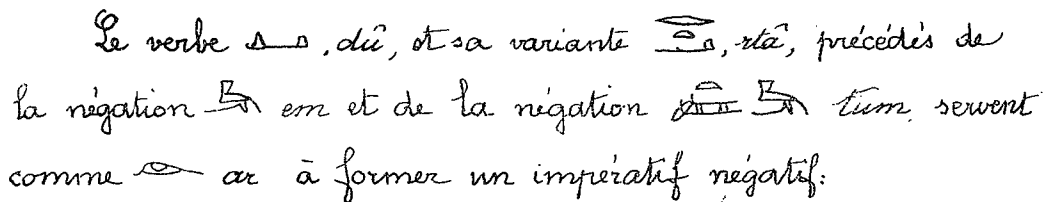 Le verbe 𓂞, dû, et sa variante 𓂋𓏏𓂞, rtâ, précédés de
la négation 𓅓 em et de la négation 𓍃𓅓 tum, servent
comme 𓁹 ar à former un impératif négatif: